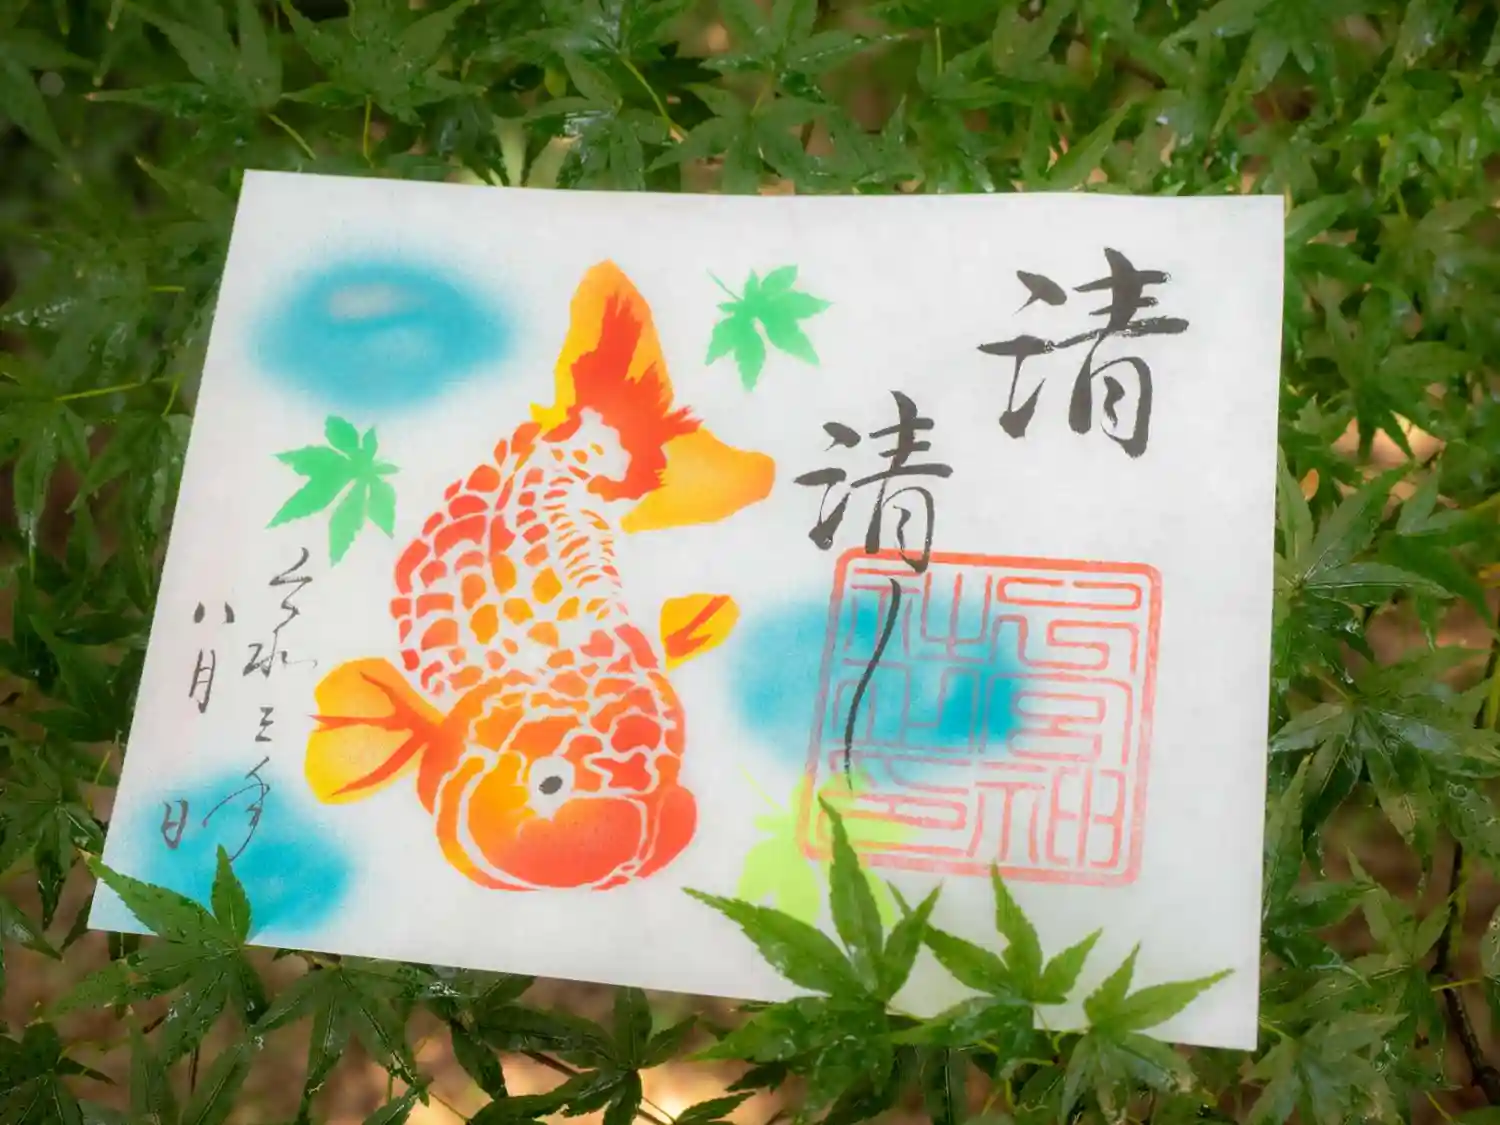 清
清し
令和三年
八月 日